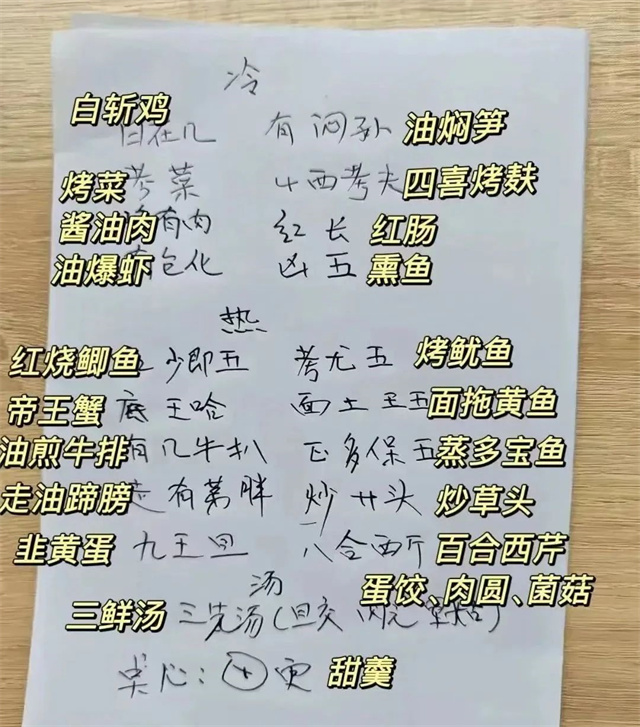 冷
白斩鸡 白在几 有闷孙 油焖笋
烤菜 考菜 4西考夫 四喜烤麸
酱油肉 有肉 红长 红肠
油爆虾 包化 凶五 熏鱼
热
红烧鲫鱼 少即五 考尤五 烤鱿鱼
帝王蟹 底王哈 面土王五 面拖黄鱼
油煎牛排 有几牛扒 正多保五 蒸多宝鱼
走油蹄膀 走有第胖 炒廿头 炒草头
韭黄蛋 九王旦 八合西斤 百合西芹
汤 蛋饺、肉圆、菌菇
三鲜汤 三先汤(旦交 肉元
点心: 甜羹